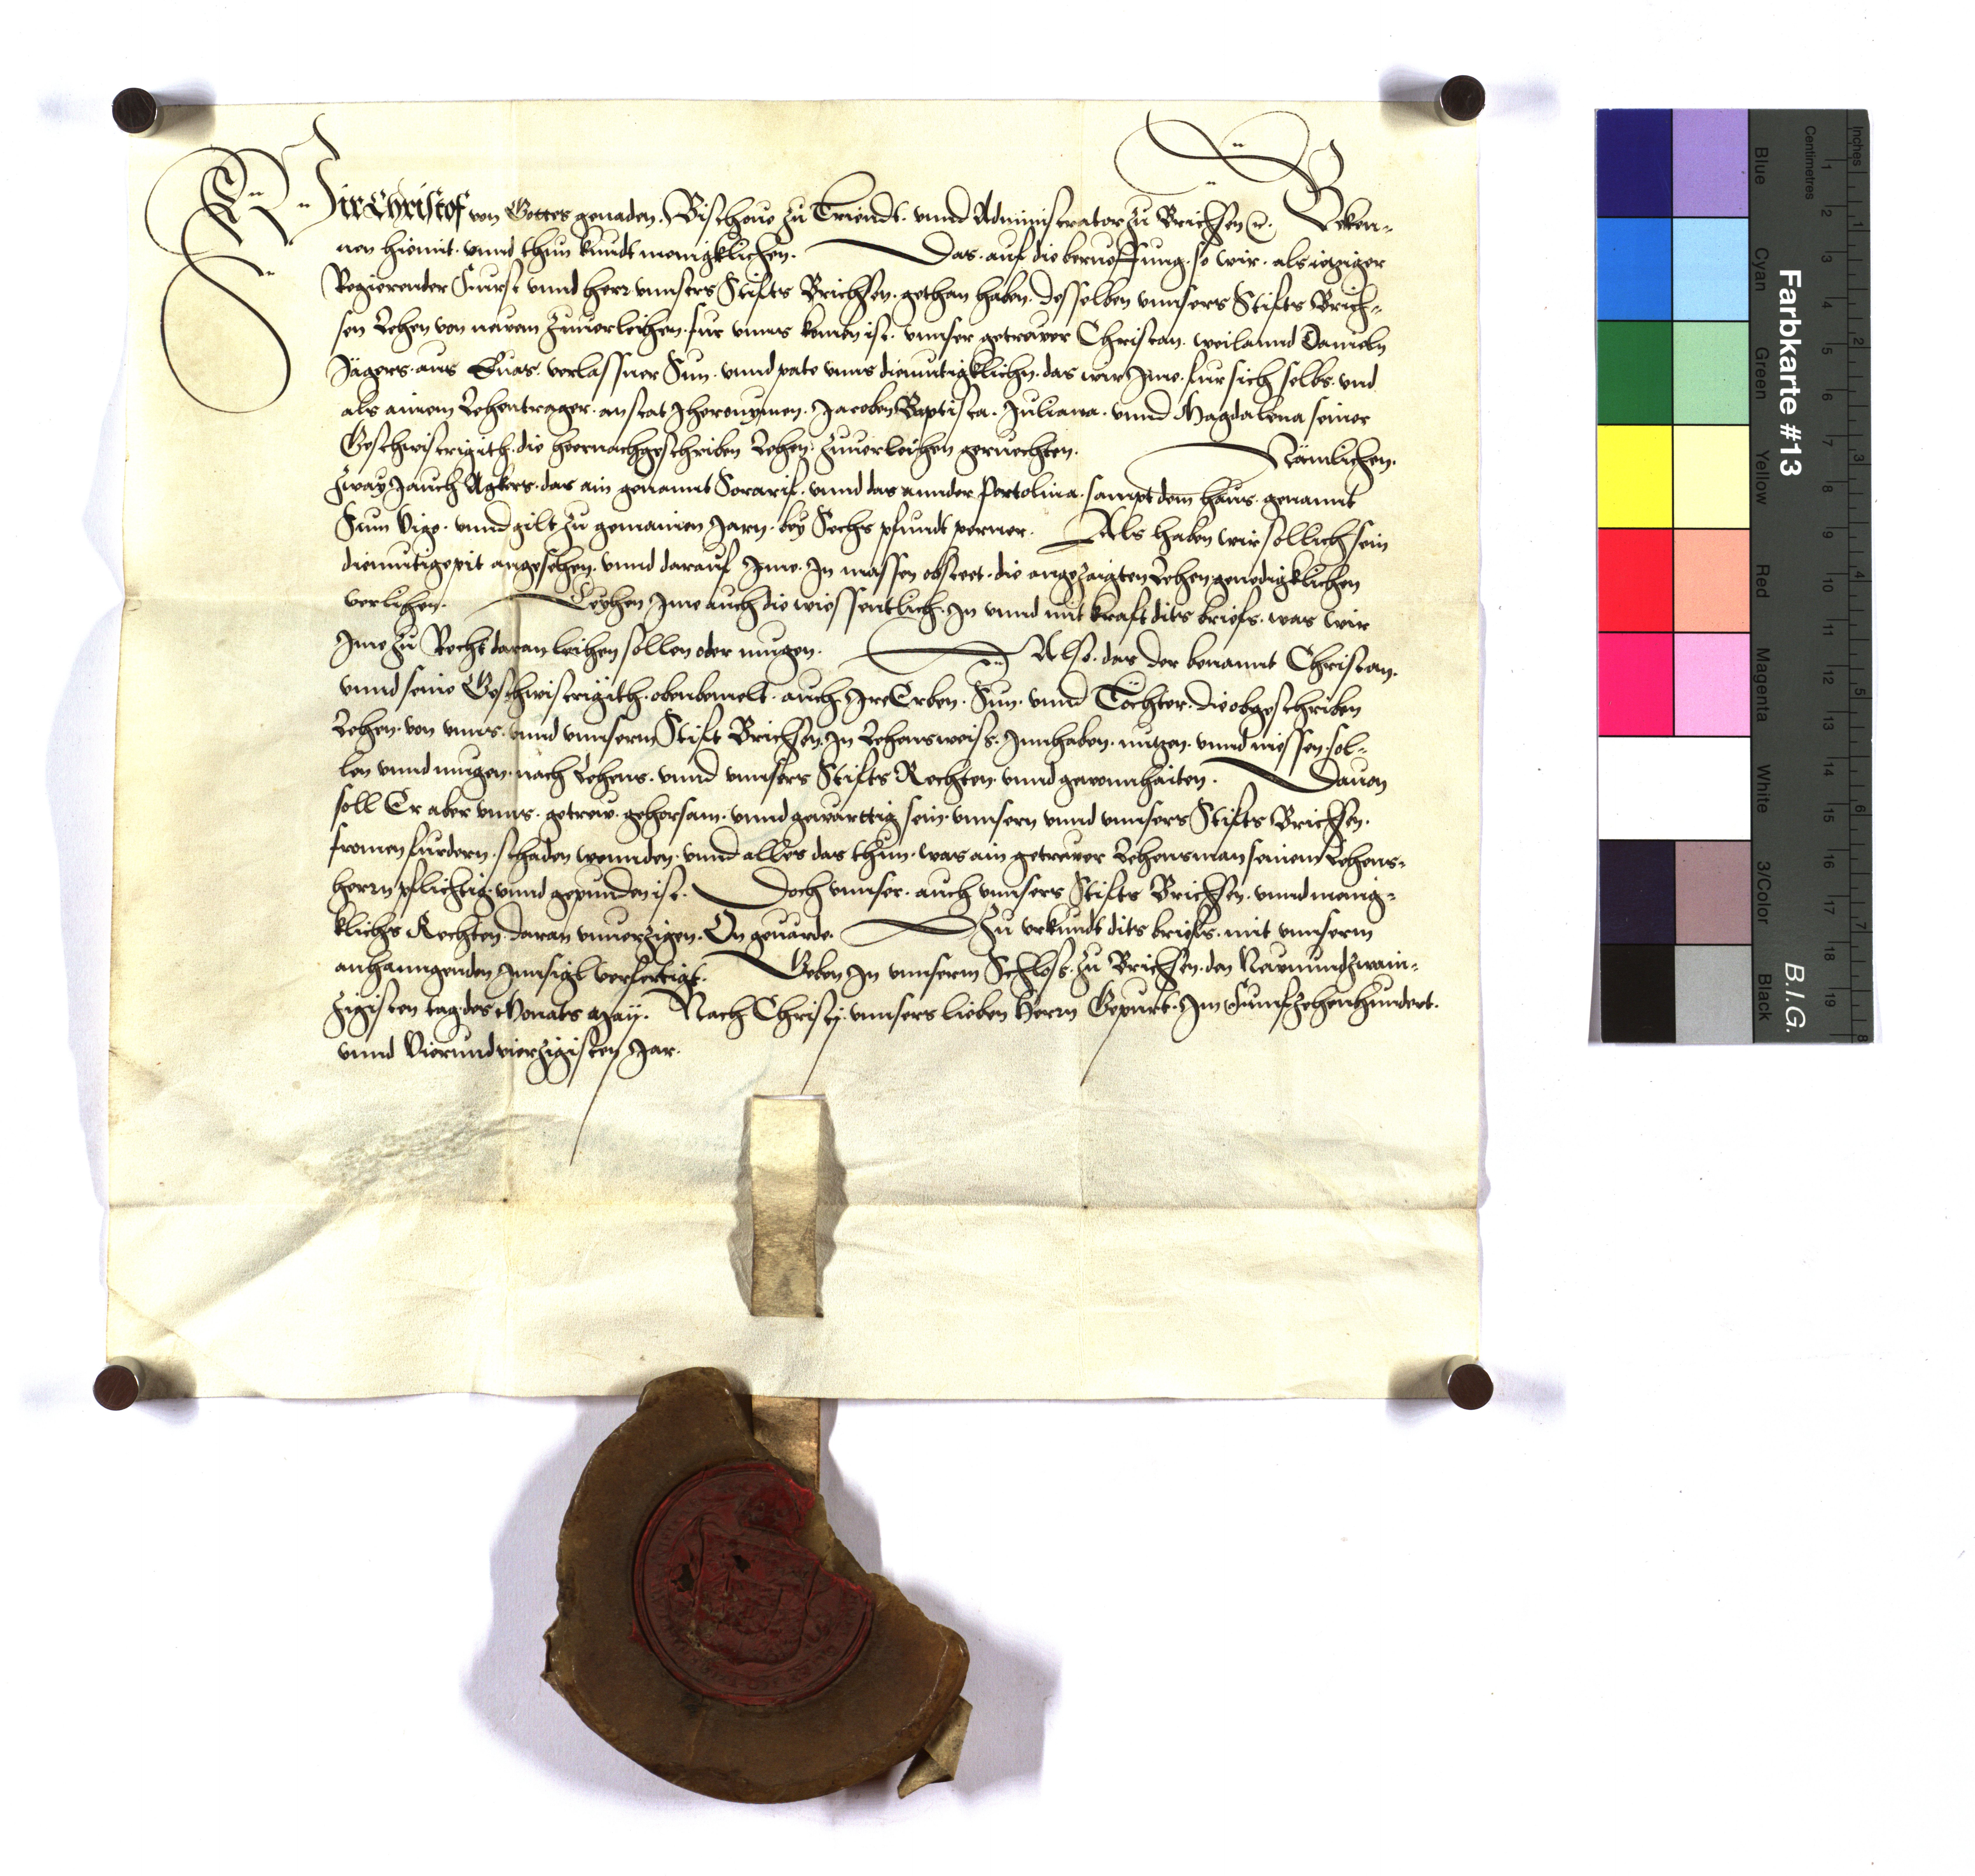 Wir Christof von Gottes genaden. Bischoue zu Triendt. vnnd Administrator zu Brichsen rc. Beken-
nen hiemit. vnnd thun kundt menigklichen. Das. auf die berueffung. so wir. als ietziger
Regierender Furst vnnd herr vnnsers Stifts Brichsen. gethan haben. desselben vnnsers Stifts Brich-
sen Lehen von newem zuuerleihen. fur vnns komen ist. vnnser getrewer Christan. weilannd Danieln
Jägers. aus Euas. verlassner Sun. vnnd pate vnns diemutigklichn. das wir Ime. fur sich selbs. vnd
als ainem Lehentrager. anstat Jheronymen. Jacoben Baptista. Juliana. vnnd Magdalena seiner
Geschwistrigith. die heernachgeschriben Lehen. zuuerleihen geruechten. Nämlichen.
zway Jauch Agkers. das ain genannt Soraruf. vnnd das annder Portolina. sampt dem haus. genannt
Sum Vige. vnnd gilt zu gemainen Jarn. bey Sechs pfundt perner. Als haben wir sollich sein
diemutige pit angesehen. vnnd darauf Ime. In massen obsteet. die angezaigten Lehen genedigklichen
verlihen. Leyhen Ime auch die wissentlich. In vnnd mit kraft dits briefs. was wir
Ime zu Recht daran leihen sollen oder mugen. Also. das der benannt Christan.
vnnd seine Geschwistrigith. obenbemelt. auch Ire Erben. Sun. vnnd Töchter. die obgeschriben
Lehen. von vnns. vnnd vnnserm Stift Brichsen. In Lehensweiss. Innhaben. nutzen. vnnd niessen. sol-
len vnnd mugen. nach Lehens. vnnd vnnsers Stifts Rechten. vnnd gewonnhaiten. Dauon
soll Er aber vnns. getrew. gehorsam. vnnd gewarttig sein. vnnsern vnnd vnnsers Stifts Brichsen.
fromen furdern. schaden wennden. vnnd alles das thun. was ain getrewer Lehensman seinem Lehens-
herrn pflichtig vnnd gepunden ist. Doch vnnser. auch vnnsers Stifts Brichsen. vnnd menig-
klichs Rechten. daran vnuerzigen. On geuärde. Zu vrkundt dits briefs. mit vnnserm
anhanngenden Innsigl verfertigt. Geben In vnnserm Schloss. zu Brichsen. den Newnundzwain-
zigisten tag des Monats May. Nach Christj. vnnsers lieben Herrn Gepurt. Im Funfzehenhundert.
vnnd Vierundvierzigisten Jar.
Farbkarte #13
B.I.G.
Inches
Centimetres
Blue
Cyan
Green
Yellow
Red
Magenta
White
3/Color
Black
1 2 3 4 5 6 7 8 9 10 11 12 13 14 15 16 17 18 19
1 2 3 4 5 6 7 8